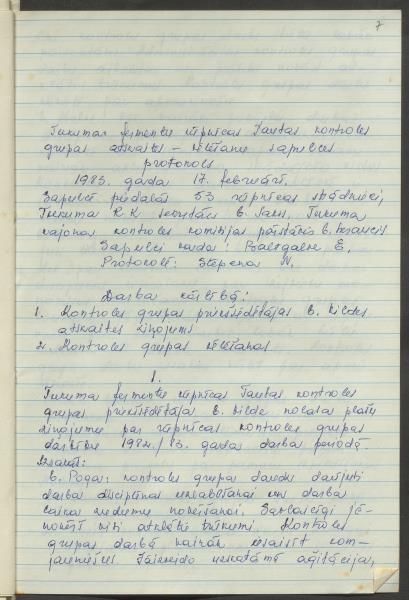 7
Tukuma fermentu rūpnīcas Tautas kontroles
grupas atskaites – vēlēšanu sapulces
protokols
1983. gada 17. februārī.
Sapulcē piedalās 53 rūpnīcas strādnieki,
Tukuma R.K. sekretārs b. Tukuma
rajona kontroles komitejas b.
Sapulci vada: E.
Protokolē: Stepena
Darba kārtībā:
1. Kontroles grupas priekšsēdētājas b. Bildes
atskaites ziņojums
2. Kontroles grupas vēlēšanas
1.
Tukuma fermentu rūpnīcas Tautas kontroles
grupas priekšsēdētāja b. Bilde nolasa plašu
ziņojumu par rūpnīcas kontroles grupas
1982./83. gada darba periodā.
Izsakās:
b. Poga: kontroles grupas daudz darījusi
darba disciplīnas uzlabošanai un darba
laika zudumu novēršanai. Savlaicīgi jā-
novērš visi atklātie trūkumi. Kontroles
grupas darbā vairāk iesaistīt kom-
jauniešus. Jāizveido uzskatāmā aģitācija,